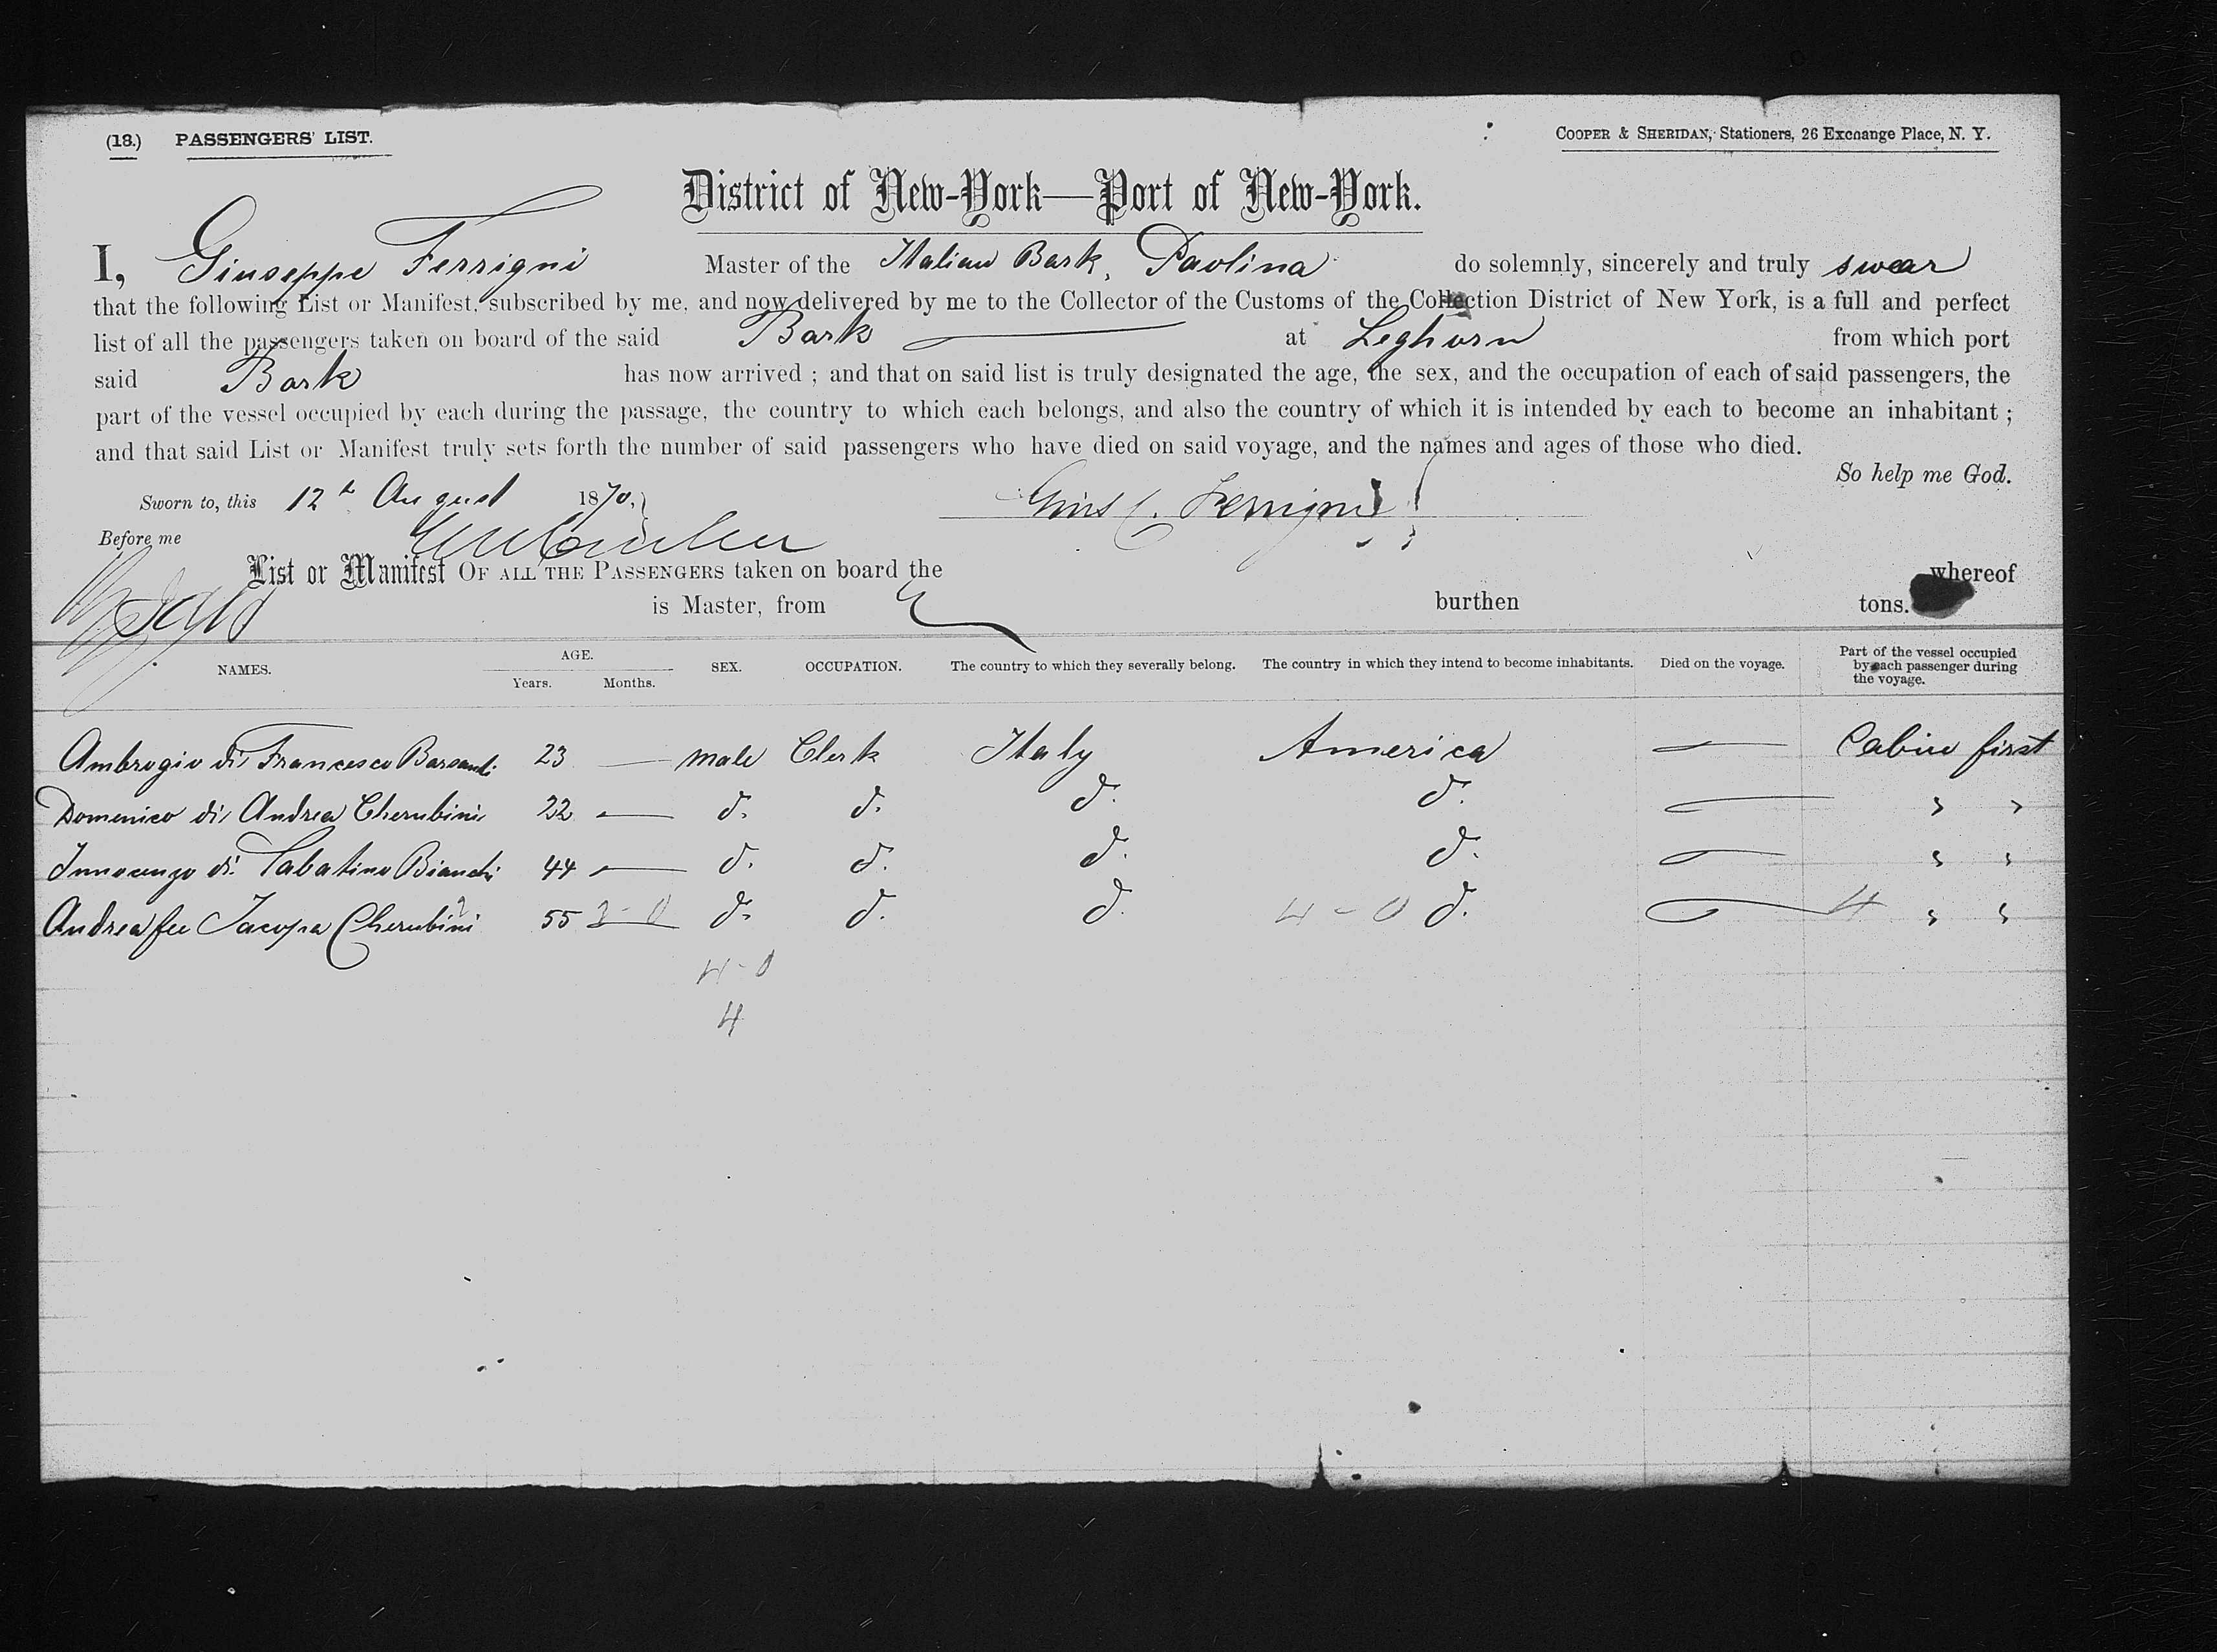 (18.) PASSENGERS' LIST. COOPER & SHERIDAN, Stationers, 26 Exchange Place, N. Y.
District of New-York—Port of New-York.
I, Giuseppe Ferrigni Master of the Italian Bark, Paolina do solemnly, sincerely and truly swear
that the following List or Manifest, subscribed by me, and now delivered by me to the Collector of the Customs of the Collection District of New York, is a full and perfect
list of all the passengers taken on board of the said Bark at Leghorn from which port
said Bark has now arrived ; and that on said list is truly designated the age, the sex, and the occupation of each of said passengers, the
part of the vessel occupied by each during the passage, the country to which each belongs, and also the country of which it is intended by each to become an inhabitant ;
and that said List or Manifest truly sets forth the number of said passengers who have died on said voyage, and the names and ages of those who died.
So help me God.
Sworn to, this 12th August 1870, Ferrigni
Before me
List or Manifest OF ALL THE PASSENGERS taken on board the whereof
is Master, from burthen tons.
NAMES. AGE. Years. Months. SEX. OCCUPATION. The country to which they severally belong. The country in which they intend to become inhabitants. Died on the voyage. Part of the vessel occupied by each passenger during the voyage.
Ambrogio di Francesco Barsanti 23 — male Clerk Italy America — Cabin first
Domenico di Andrea Cherubini 22 — d. d. d. d. — " "
Innocenzo di Sabatino Bianchi 44 — d. d. d. d. — " "
Andrea fu Jacopa Cherubini 55 3-0 d. d. d. 4-0 d. — 4 " "
4-0
4